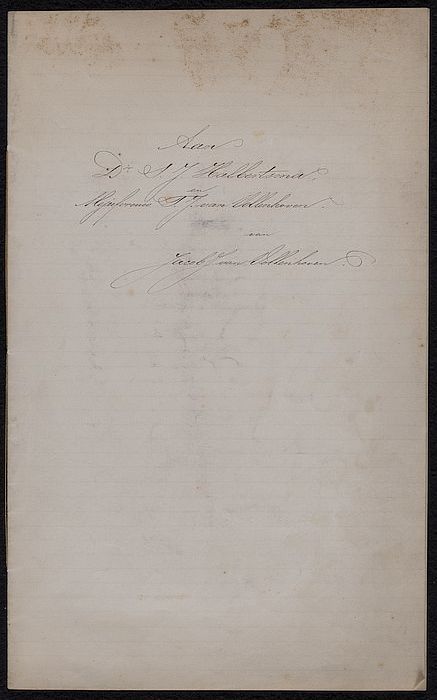 Aan
Dr. S. J. Halbertsma,
en
Mejufvrouw S. J. van Vollenhoven.
van
Jacob J van Vollenhoven.